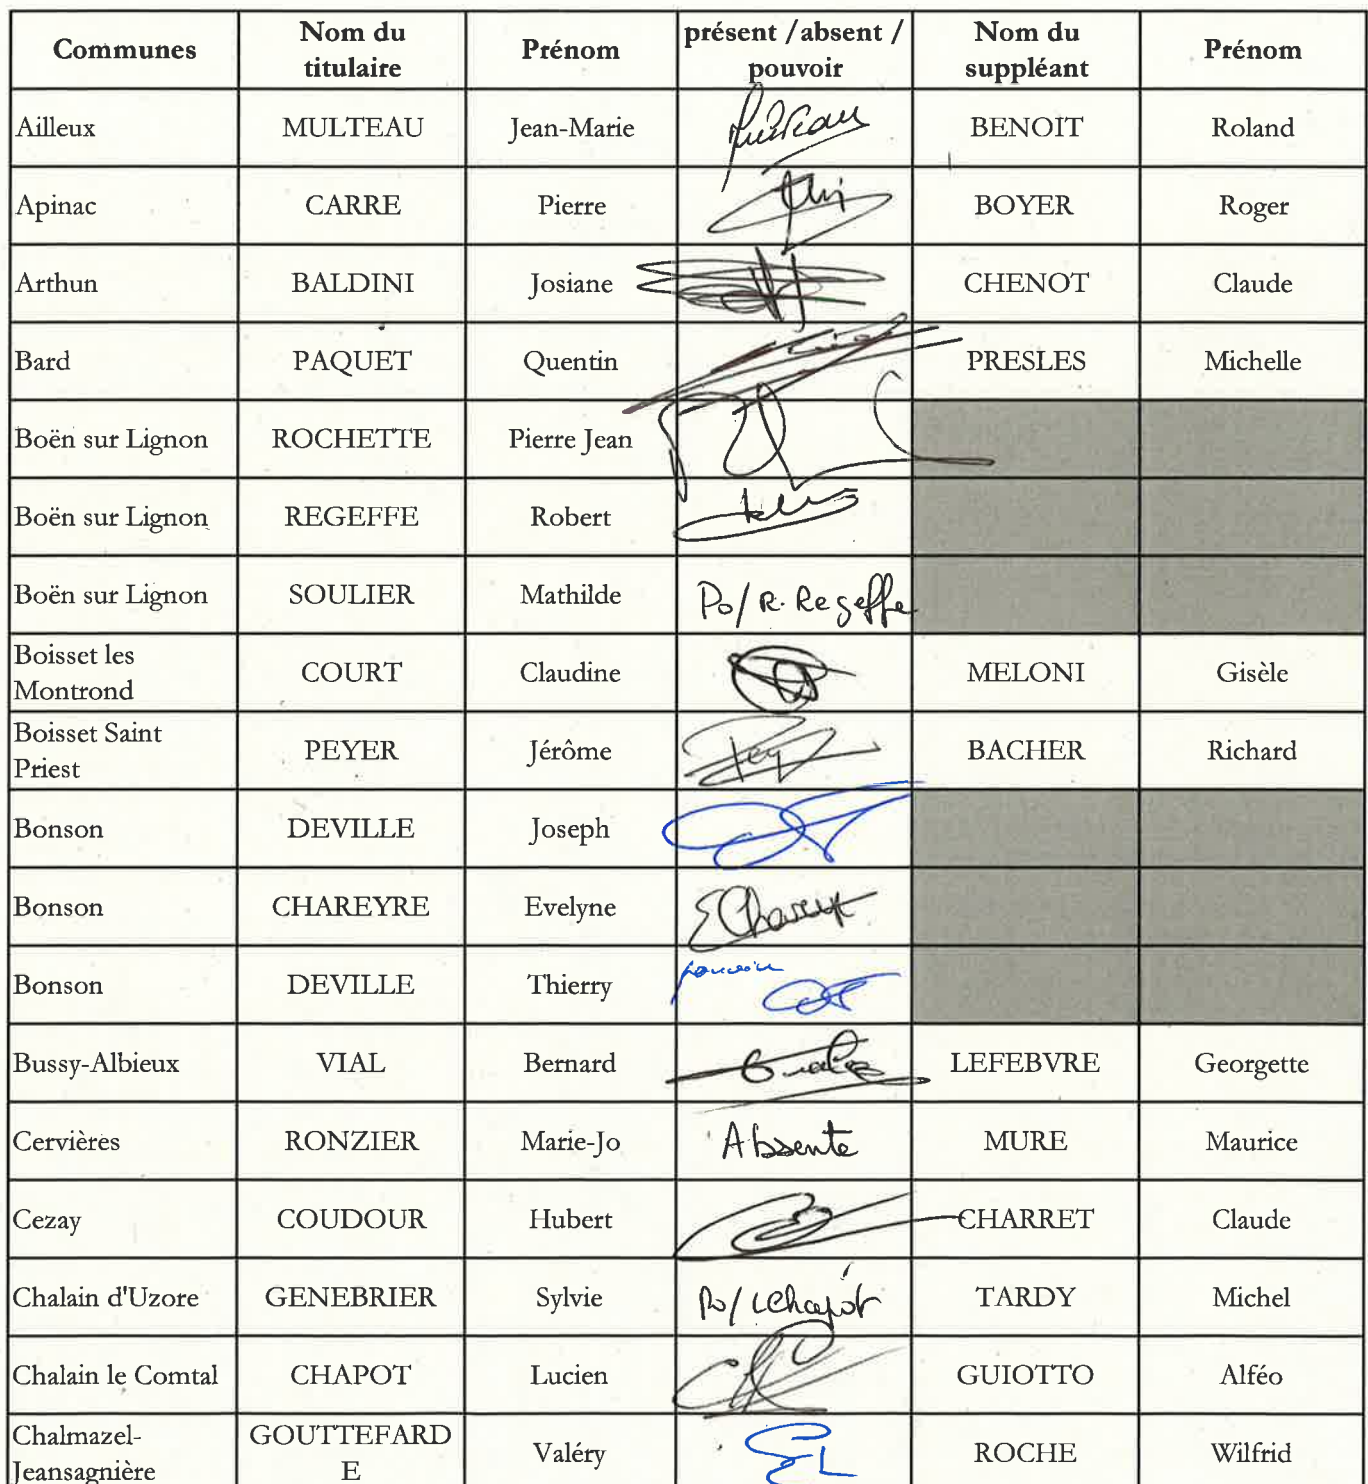 Communes Nom du titulaire Prénom présent /absent / pouvoir Nom du suppléant Prénom
Ailleux MULTEAU Jean-Marie BENOIT Roland
Apinac CARRE Pierre BOYER Roger
Arthun BALDINI Josiane CHENOT Claude
Bard PAQUET Quentin PRESLES Michelle
Boën sur Lignon ROCHETTE Pierre Jean
Boën sur Lignon REGEFFE Robert
Boën sur Lignon SOULIER Mathilde Po/ R. Regeffe
Boisset les Montrond COURT Claudine MELONI Gisèle
Boisset Saint Priest PEYER Jérôme BACHER Richard
Bonson DEVILLE Joseph
Bonson CHAREYRE Evelyne
Bonson DEVILLE Thierry pouvoir
Bussy-Albieux VIAL Bernard LEFEBVRE Georgette
Cervières RONZIER Marie-Jo Absente MURE Maurice
Cezay COUDOUR Hubert CHARRET Claude
Chalain d'Uzore GENEBRIER Sylvie Po/ LChapot TARDY Michel
Chalain le Comtal CHAPOT Lucien GUIOTTO Alféo
Chalmazel-Jeansagnière GOUTTEFARDE Valéry ROCHE Wilfrid